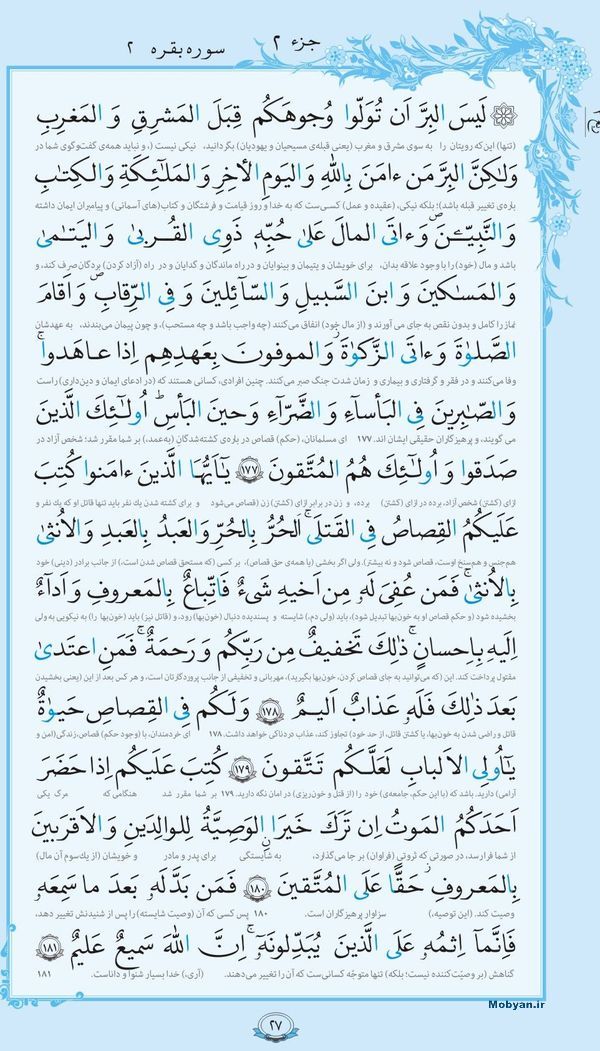 جزء ۲
سوره بقره ۲
لَیسَ البِرَّ اَن تُوَلّوا وُجوهَکُم قِبَلَ المَشرِقِ وَ المَغرِبِ
(تنها) این که رویتان را به سوی مشرق و مغرب (یعنی قبله‌ی مسیحیان و یهودیان) بگردانید، نیکی نیست (، و نباید همه‌ی گفت‌وگوی شما در
وَلٰکِنَّ البِرَّ مَن ءامَنَ بِاللهِ وَ الیَومِ الأخِرِ وَ المَلٰئِکَةِ وَ الکِتٰبِ
باره‌ی تغییر قبله باشد)؛ بلکه نیکی، (عقیده و عمل) کسی‌ست که به خدا و روز قیامت و فرشتگان و کتاب(های آسمانی) و پیامبران ایمان داشته
وَ النَّبِیّٖنَ وَ ءاتَی المالَ عَلیٰ حُبِّهٖ ذَوِی القُربیٰ وَ الیَتٰمیٰ
باشد و مال (خود) را با وجود علاقه بدان، برای خویشان و یتیمان و بینوایان و در راه ماندگان و گدایان و در راه (آزاد کردن) بردگان صرف کند، و
وَ المَسٰکینَ وَ ابنَ السَّبیلِ وَ السّآئِلینَ وَ فِی الرِّقابِ وَ اَقامَ
نماز را کامل و بدون نقص به جای می آورند و (از مال خود) انفاق می‌کنند (چه واجب باشد و چه مستحب)، و چون پیمان می‌بندند، به عهدشان
الصَّلوٰةَ وَ ءاتَی الزَّکوٰةَ وَ الموفونَ بِعَهدِهِم اِذا عاهَدوا
وفا می‌کنند و در فقر و گرفتاری و بیماری و زمان شدت جنگ صبر می‌کنند. چنین افرادی، کسانی هستند که (در ادعای ایمان و دین‌داری) راست
وَ الصّٰبِرینَ فِی البَأسآءِ وَ الضَّرّآءِ وَ حینَ البَأسِ اُولٰئِكَ الَّذینَ
می گویند، و پرهیزگاران حقیقی ایشان اند. ۱۷۷ ای مسلمانان، (حکم) قصاص در باره‌ی کشته‌شدگان (به‌عمد،) بر شما مقرر شد؛ شخص آزاد در
صَدَقوا وَ اُولٰئِكَ هُمُ المُتَّقونَ ۱۷۷ یٰاَیُّهَا الَّذینَ ءامَنوا کُتِبَ
ازای (کشتن) شخص آزاد، برده در ازای (کشتن) برده، و زن در برابر ازای (کشتن) زن (قصاص می‌شود و برای کشته شدن یك نفر باید تنها قاتل او که یك نفر و
عَلَیکُمُ القِصاصُ فِی القَتلَی الحُرُّ بِالحُرِّ وَ العَبدُ بِالعَبدِ وَ الاُنثیٰ
هم‌جنس و هم‌سنخ اوست، قصاص شود و نه بیشتر). ولی اگر بخشی (یا همه‌ی حق قصاص)، بر کسی (که مستحق قصاص شده است،) از جانب برادر (دینی) خود
بِالاُنثیٰ فَمَن عُفِیَ لَهٗ مِن اَخیهِ شَیءٌ فَاتِّباعٌ بِالمَعروفِ وَ اَدآءٌ
بخشیده شود (و حکم قصاص او به خون‌بها تبدیل شود)، باید (ولی دم،) شایسته و پسندیده دنبال (خون‌بها) رود، و (قاتل نیز) باید (خون‌بها را) به نیکویی به ولی
اِلَیهِ بِاِحسانٍ ذٰلِكَ تَخفیفٌ مِن رَبِّکُم وَ رَحمَةٌ فَمَنِ اعتَدیٰ
مقتول پرداخت کند. این (که می‌توانید به جای قصاص کردن، خون‌بها بگیرید)، مهربانی و تخفیفی از جانب پروردگارتان است، و هر کس بعد از این (یعنی بخشیدن
بَعدَ ذٰلِكَ فَلَهٗ عَذابٌ اَلیمٌ ۱۷۸ وَ لَکُم فِی القِصاصِ حَیوٰةٌ
قاتل و راضی شدن به خون‌بها، یا کشتن قاتل، از حد خود) تجاوز کند، عذاب دردناکی خواهد داشت. ۱۷۸ ای خردمندان، (با وجود حکم) قصاص، زندگی (امن و
یٰاُولِی الاَلبابِ لَعَلَّکُم تَتَّقونَ ۱۷۹ کُتِبَ عَلَیکُم اِذا حَضَرَ
آرامی) دارید. باشد که (با این حکم، جامعه‌ی) خود را (از قتل و خون‌ریزی) در امان نگه دارید. ۱۷۹ بر شما مقرر شد هنگامی که مرگ یکی
اَحَدَکُمُ المَوتُ اِن تَرَكَ خَیرًا الوَصِیَّةُ لِلوالِدَینِ وَ الاَقرَبینَ
از شما فرارسد، در صورتی که ثروتی (فراوان) بر جا می‌گذارد، به شایستگی برای پدر و مادر و خویشان (از یك‌سوم آن مال)
بِالمَعروفِ حَقًّا عَلَی المُتَّقینَ ۱۸۰ فَمَن بَدَّلَهٗ بَعدَ ما سَمِعَهٗ
وصیت کند. (این توصیه،) سزاوار پرهیزگاران است. ۱۸۰ پس کسی که آن (وصیت شایسته) را پس از شنیدنش تغییر دهد،
فَاِنَّمآ اِثمُهٗ عَلَی الَّذینَ یُبَدِّلونَهٗٓ اِنَّ اللهَ سَمیعٌ عَلیمٌ ۱۸۱
گناهش (بر وصیّت‌کننده نیست؛ بلکه) تنها متوجّه کسانی‌ست که آن را تغییر می‌دهند. (آری،) خدا بسیار شنوا و داناست. ۱۸۱
Mobyan.ir
۲۷